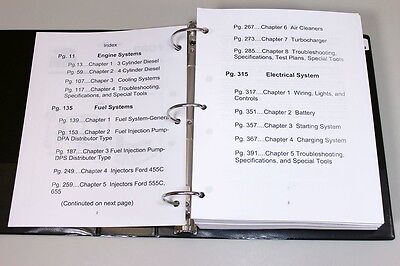 Index
Pg. 11 Engine Systems
Pg.13....Chapter 1 3 Cylinder Diesel
Pg. 59....Chapter 2 4 Cylinder Diesel
Pg. 107....Chapter 3 Cooling Systems
Pg. 117....Chapter 4 Troubleshooting,
Specifications, and Special Tools
Pg. 135 Fuel Systems
Pg. 139....Chapter 1 Fuel System-General
Pg. 153....Chapter 2 Fuel Injection Pump-
DPA Distributor Type
Pg. 187....Chapter 3 Fuel Injection Pump-
DPS Distributor Type
Pg. 249....Chapter 4 Injectors Ford 455C
Pg. 259....Chapter 5 Injectors Ford 555C,
655
(Continued on next page)
Pg. 267....Chapter 6 Air Cleaners
Pg. 273....Chapter 7 Turbocharger
Pg. 285....Chapter 8 Troubleshooting,
Specifications, Test Plans, Special Tools
Pg. 315 Electrical System
Pg. 317....Chapter 1 Wiring, Lights, and
Controls
Pg. 351....Chapter 2 Battery
Pg. 357....Chapter 3 Starting System
Pg. 367....Chapter 4 Charging System
Pg. 391....Chapter 5 Troubleshooting,
Specifications, and Special Tools